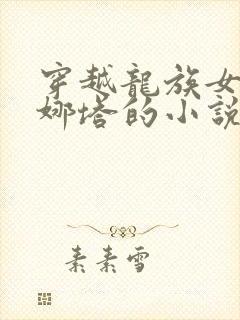 穿越龍族女
娜塔的小說
素素雪